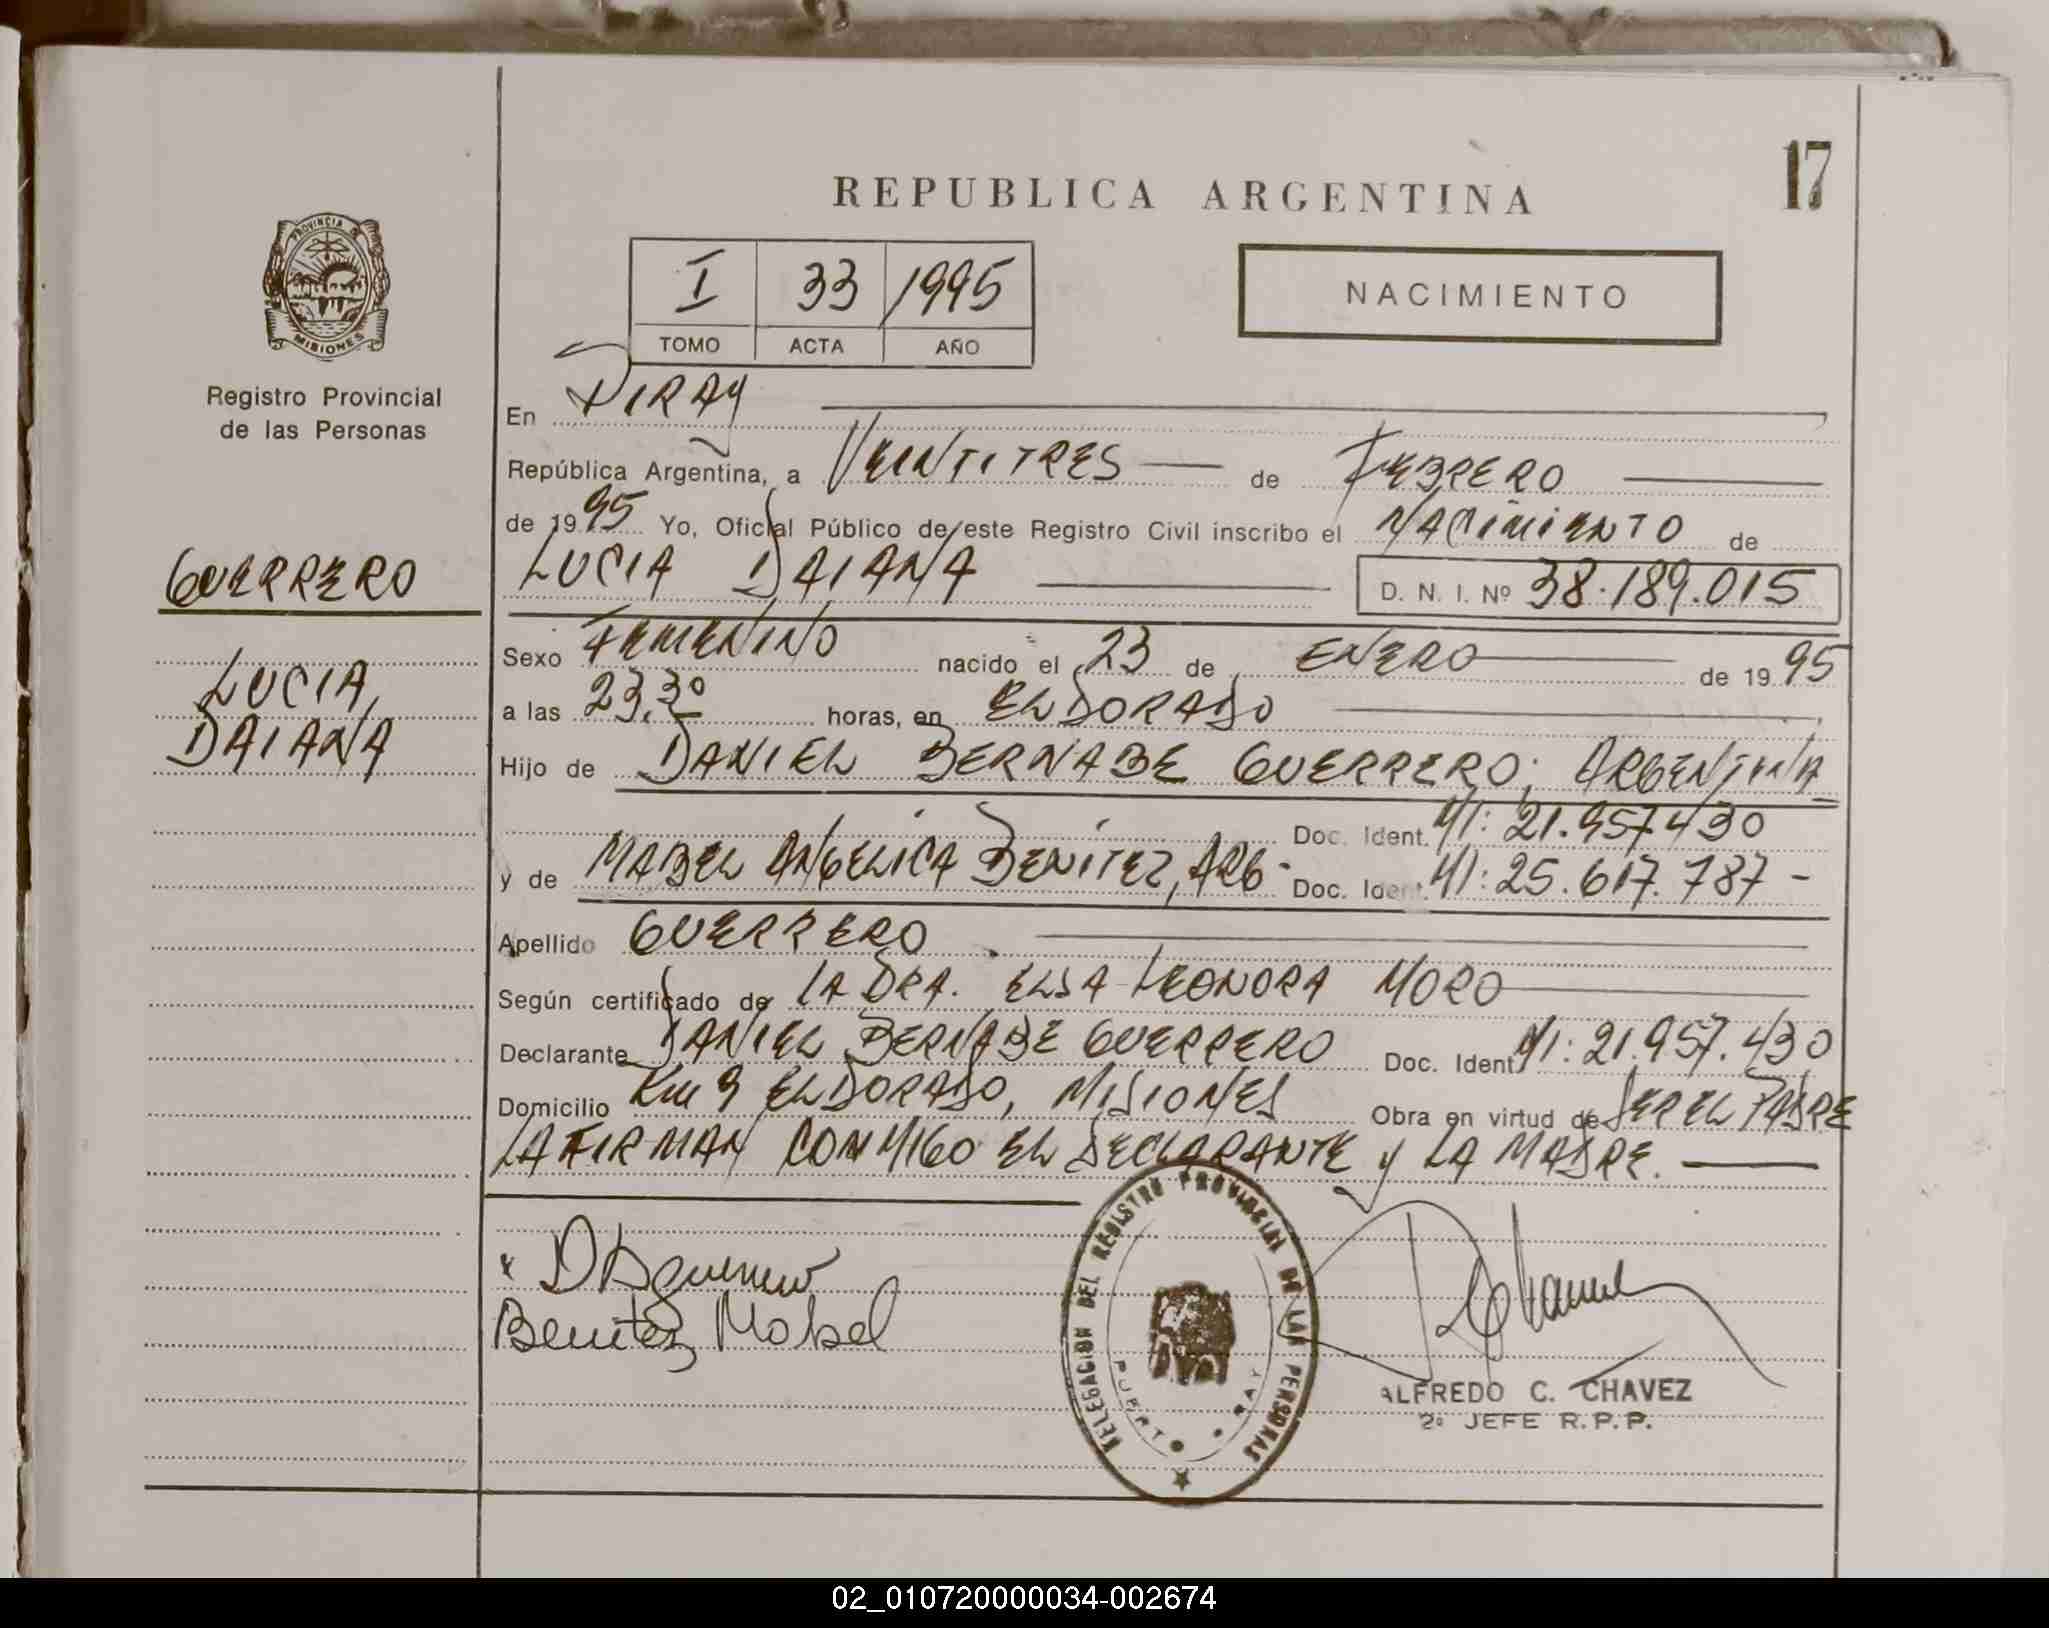 17
REPUBLICA ARGENTINA
PROVINCIA DE
MISIONES
Registro Provincial
de las Personas
I 33 1995
TOMO ACTA AÑO
NACIMIENTO
En PIRAY
República Argentina, a VEINTITRES de FEBRERO
de 1995 Yo, Oficial Público de este Registro Civil inscribo el NACIMIENTO de
GUERRERO
LUCIA DAIANA D. N. I. Nº 38.189.015
LUCIA,
DAIANA
Sexo FEMENINO nacido el 23 de ENERO de 1995
a las 23,30 horas, en ELDORADO
Hijo de DANIEL BERNABE GUERRERO; ARGENTINA
Doc. Ident. MI: 21.957.430
y de MABEL ANGELICA BENITEZ, ARG- Doc. Ident. MI: 25.617.787 -
Apellido GUERRERO
Según certificado de LA DRA. ELSA LEONORA MORO
Declarante DANIEL BERNABE GUERRERO Doc. Ident MI: 21.957.430
Domicilio Km 9 ELDORADO, MISIONES Obra en virtud de SER EL PADRE
LA FIRMAN CONMIGO EL DECLARANTE y LA MADRE.
x DBguerrero
Benitez Mabel
DELEGACION DEL REGISTRO PROVINCIAL DE LAS PERSONAS
ALFREDO C. CHAVEZ
2º JEFE R.P.P.
02_010720000034-002674